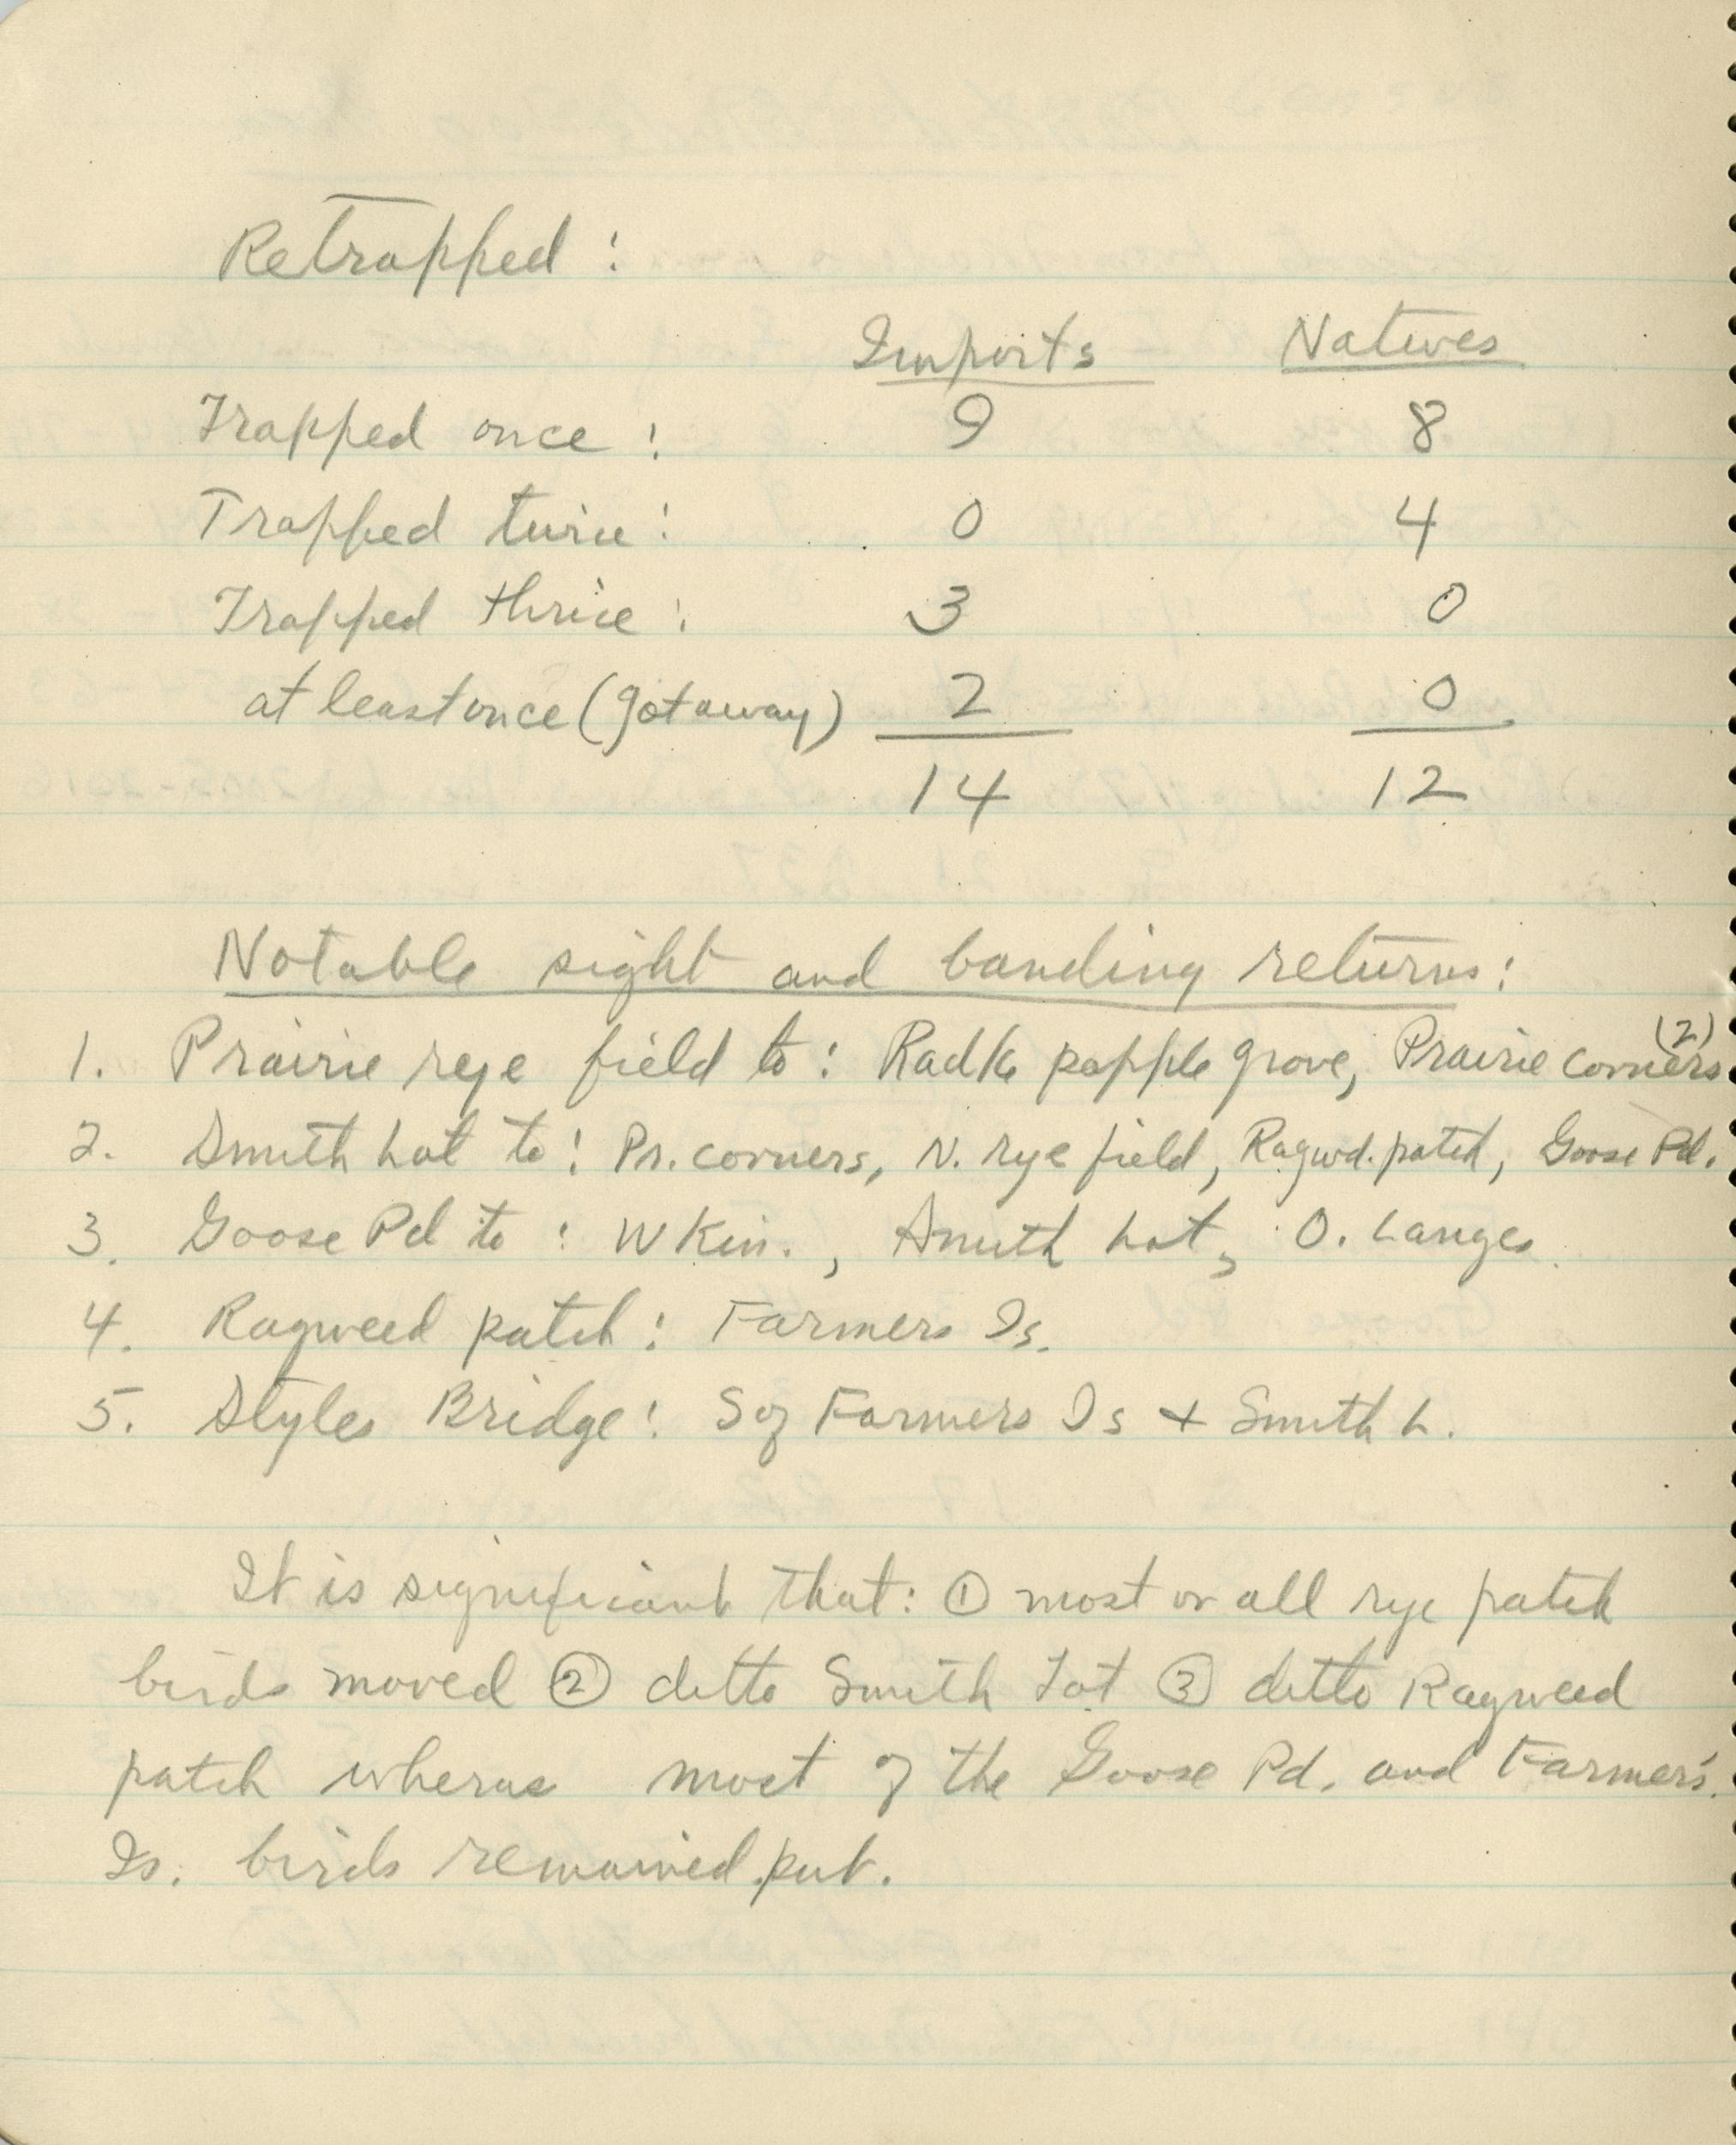 Retrapped:
Imports Natives
Trapped once: 9 8
Trapped twice: 0 4
Trapped thrice: 3 0
at least once (got away) 2 0
14 12
Notable sight and banding returns:
1. Prairie rye field to: Radke popple grove, Prairie corners (2)
2. Smith Lot to: Pr. corners, N. rye field, Ragwd. patch, Goose Pd.
3. Goose Pd to: W Kin., Smith Lot, O. Langes
4. Ragweed patch: Farmers Is.
5. Styles Bridge: S of Farmers Is + Smith L.
It is significant that: ① most or all rye patch
birds moved ② ditto Smith Lot ③ ditto Ragweed
patch wheras most of the Goose Pd. and Farmer's
Is. birds remained put.